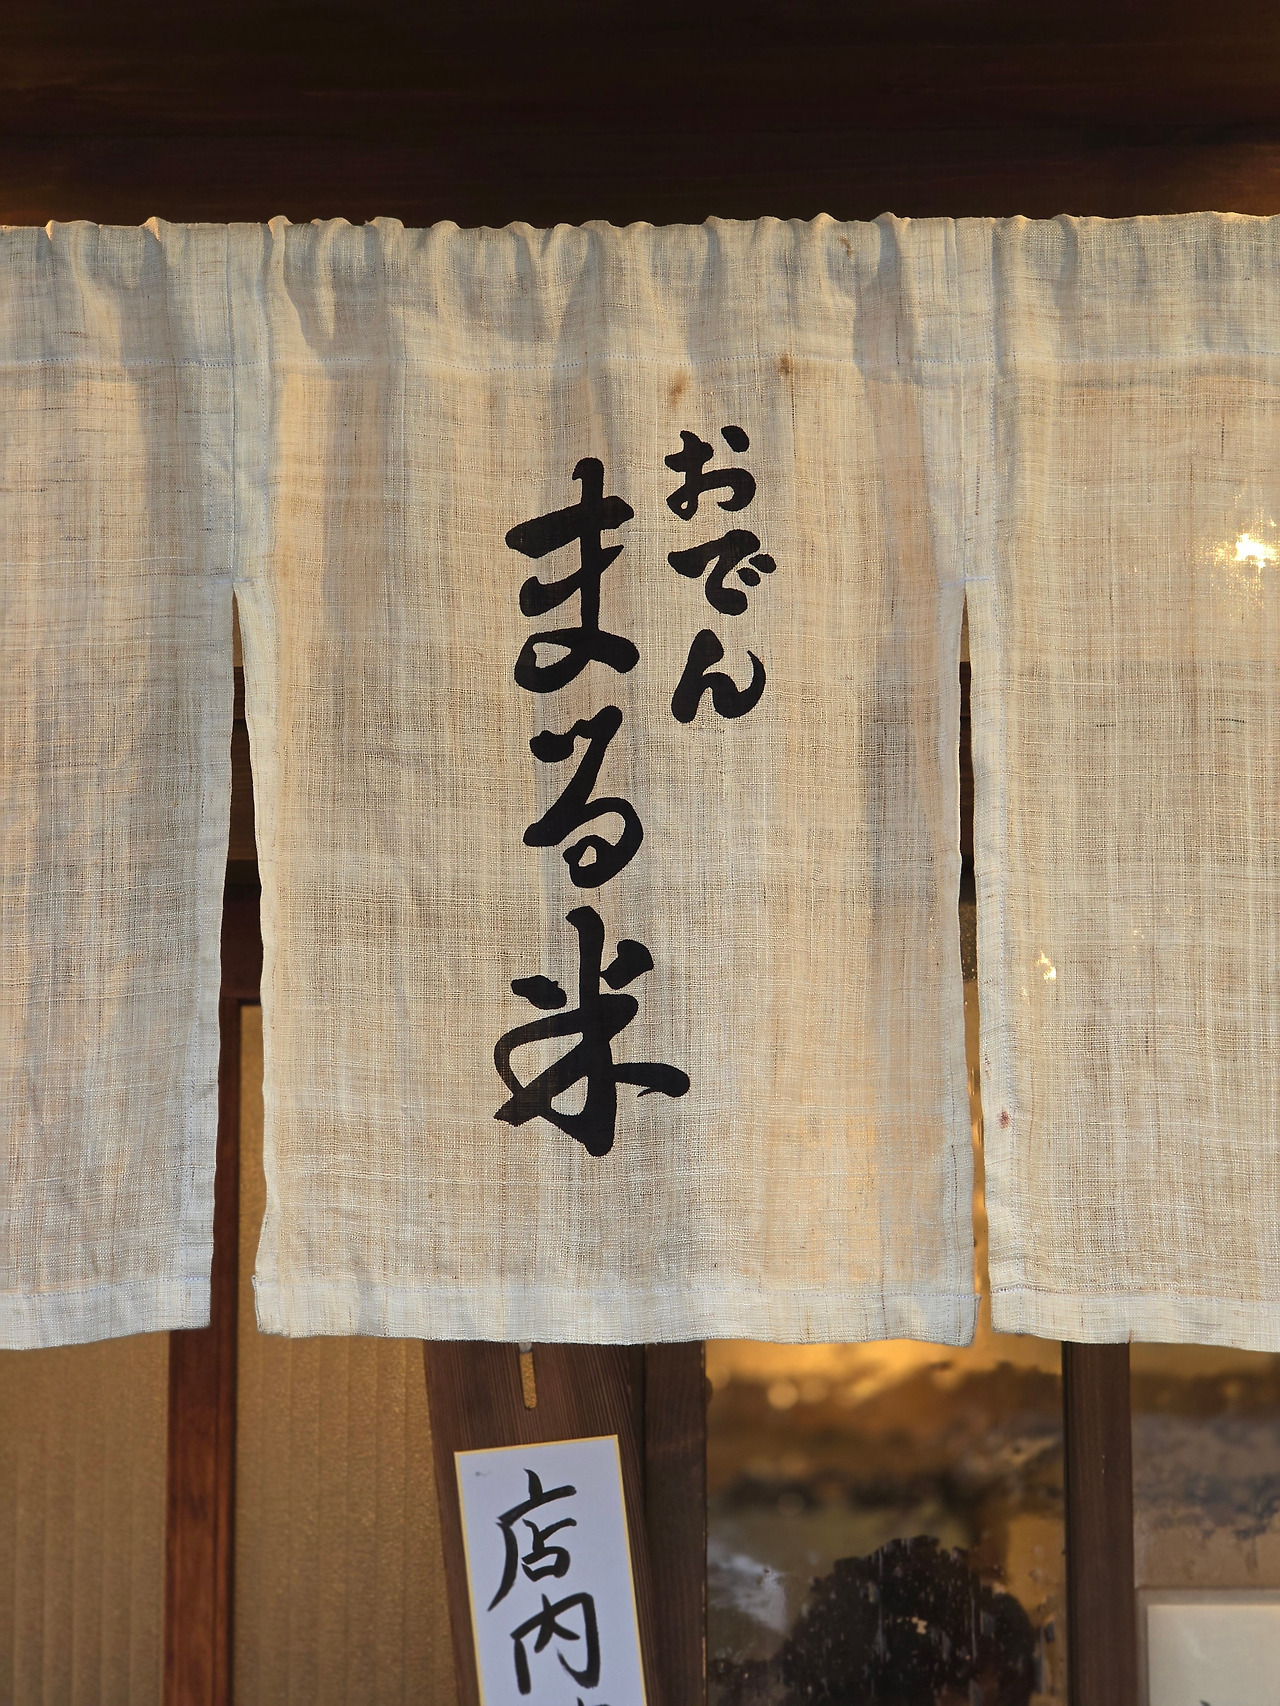 おでん
まる米
店内